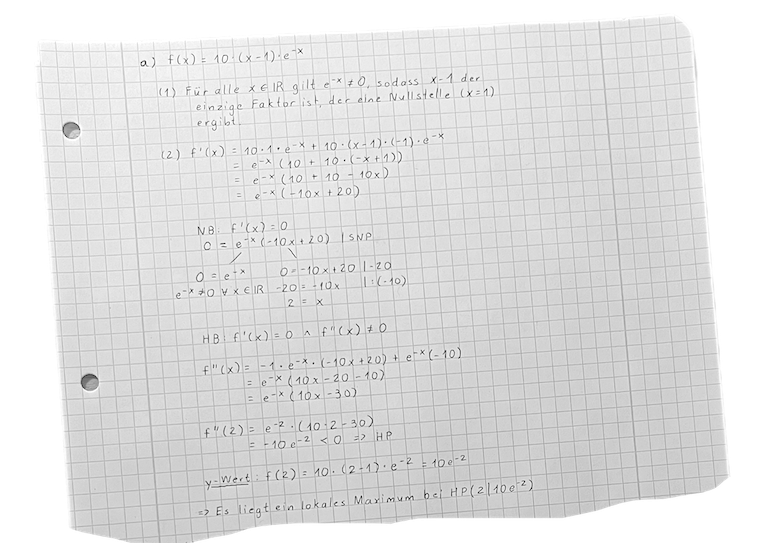 a) f(x) = 10·(x-1)·e^-x
(1) Für alle x ∈ ℝ gilt e^-x ≠ 0, sodass x-1 der
einzige Faktor ist, der eine Nullstelle (x=1)
ergibt.
(2) f'(x) = 10·1·e^-x + 10·(x-1)·(-1)·e^-x
= e^-x (10 + 10·(-x+1))
= e^-x (10 + 10 - 10x)
= e^-x (-10x + 20)
NB: f'(x) = 0
0 = e^-x (-10x + 20) | SNP
0 = e^-x 0 = -10x + 20 | -20
e^-x ≠ 0 ∀ x ∈ ℝ -20 = -10x | :(-10)
2 = x
HB: f'(x) = 0 ∧ f''(x) ≠ 0
f''(x) = -1·e^-x·(-10x+20) + e^-x(-10)
= e^-x (10x - 20 - 10)
= e^-x (10x - 30)
f''(2) = e^-2·(10·2-30)
= -10e^-2 < 0 => HP
y-Wert: f(2) = 10·(2-1)·e^-2 = 10e^-2
=> Es liegt ein lokales Maximum bei HP(2|10e^-2)